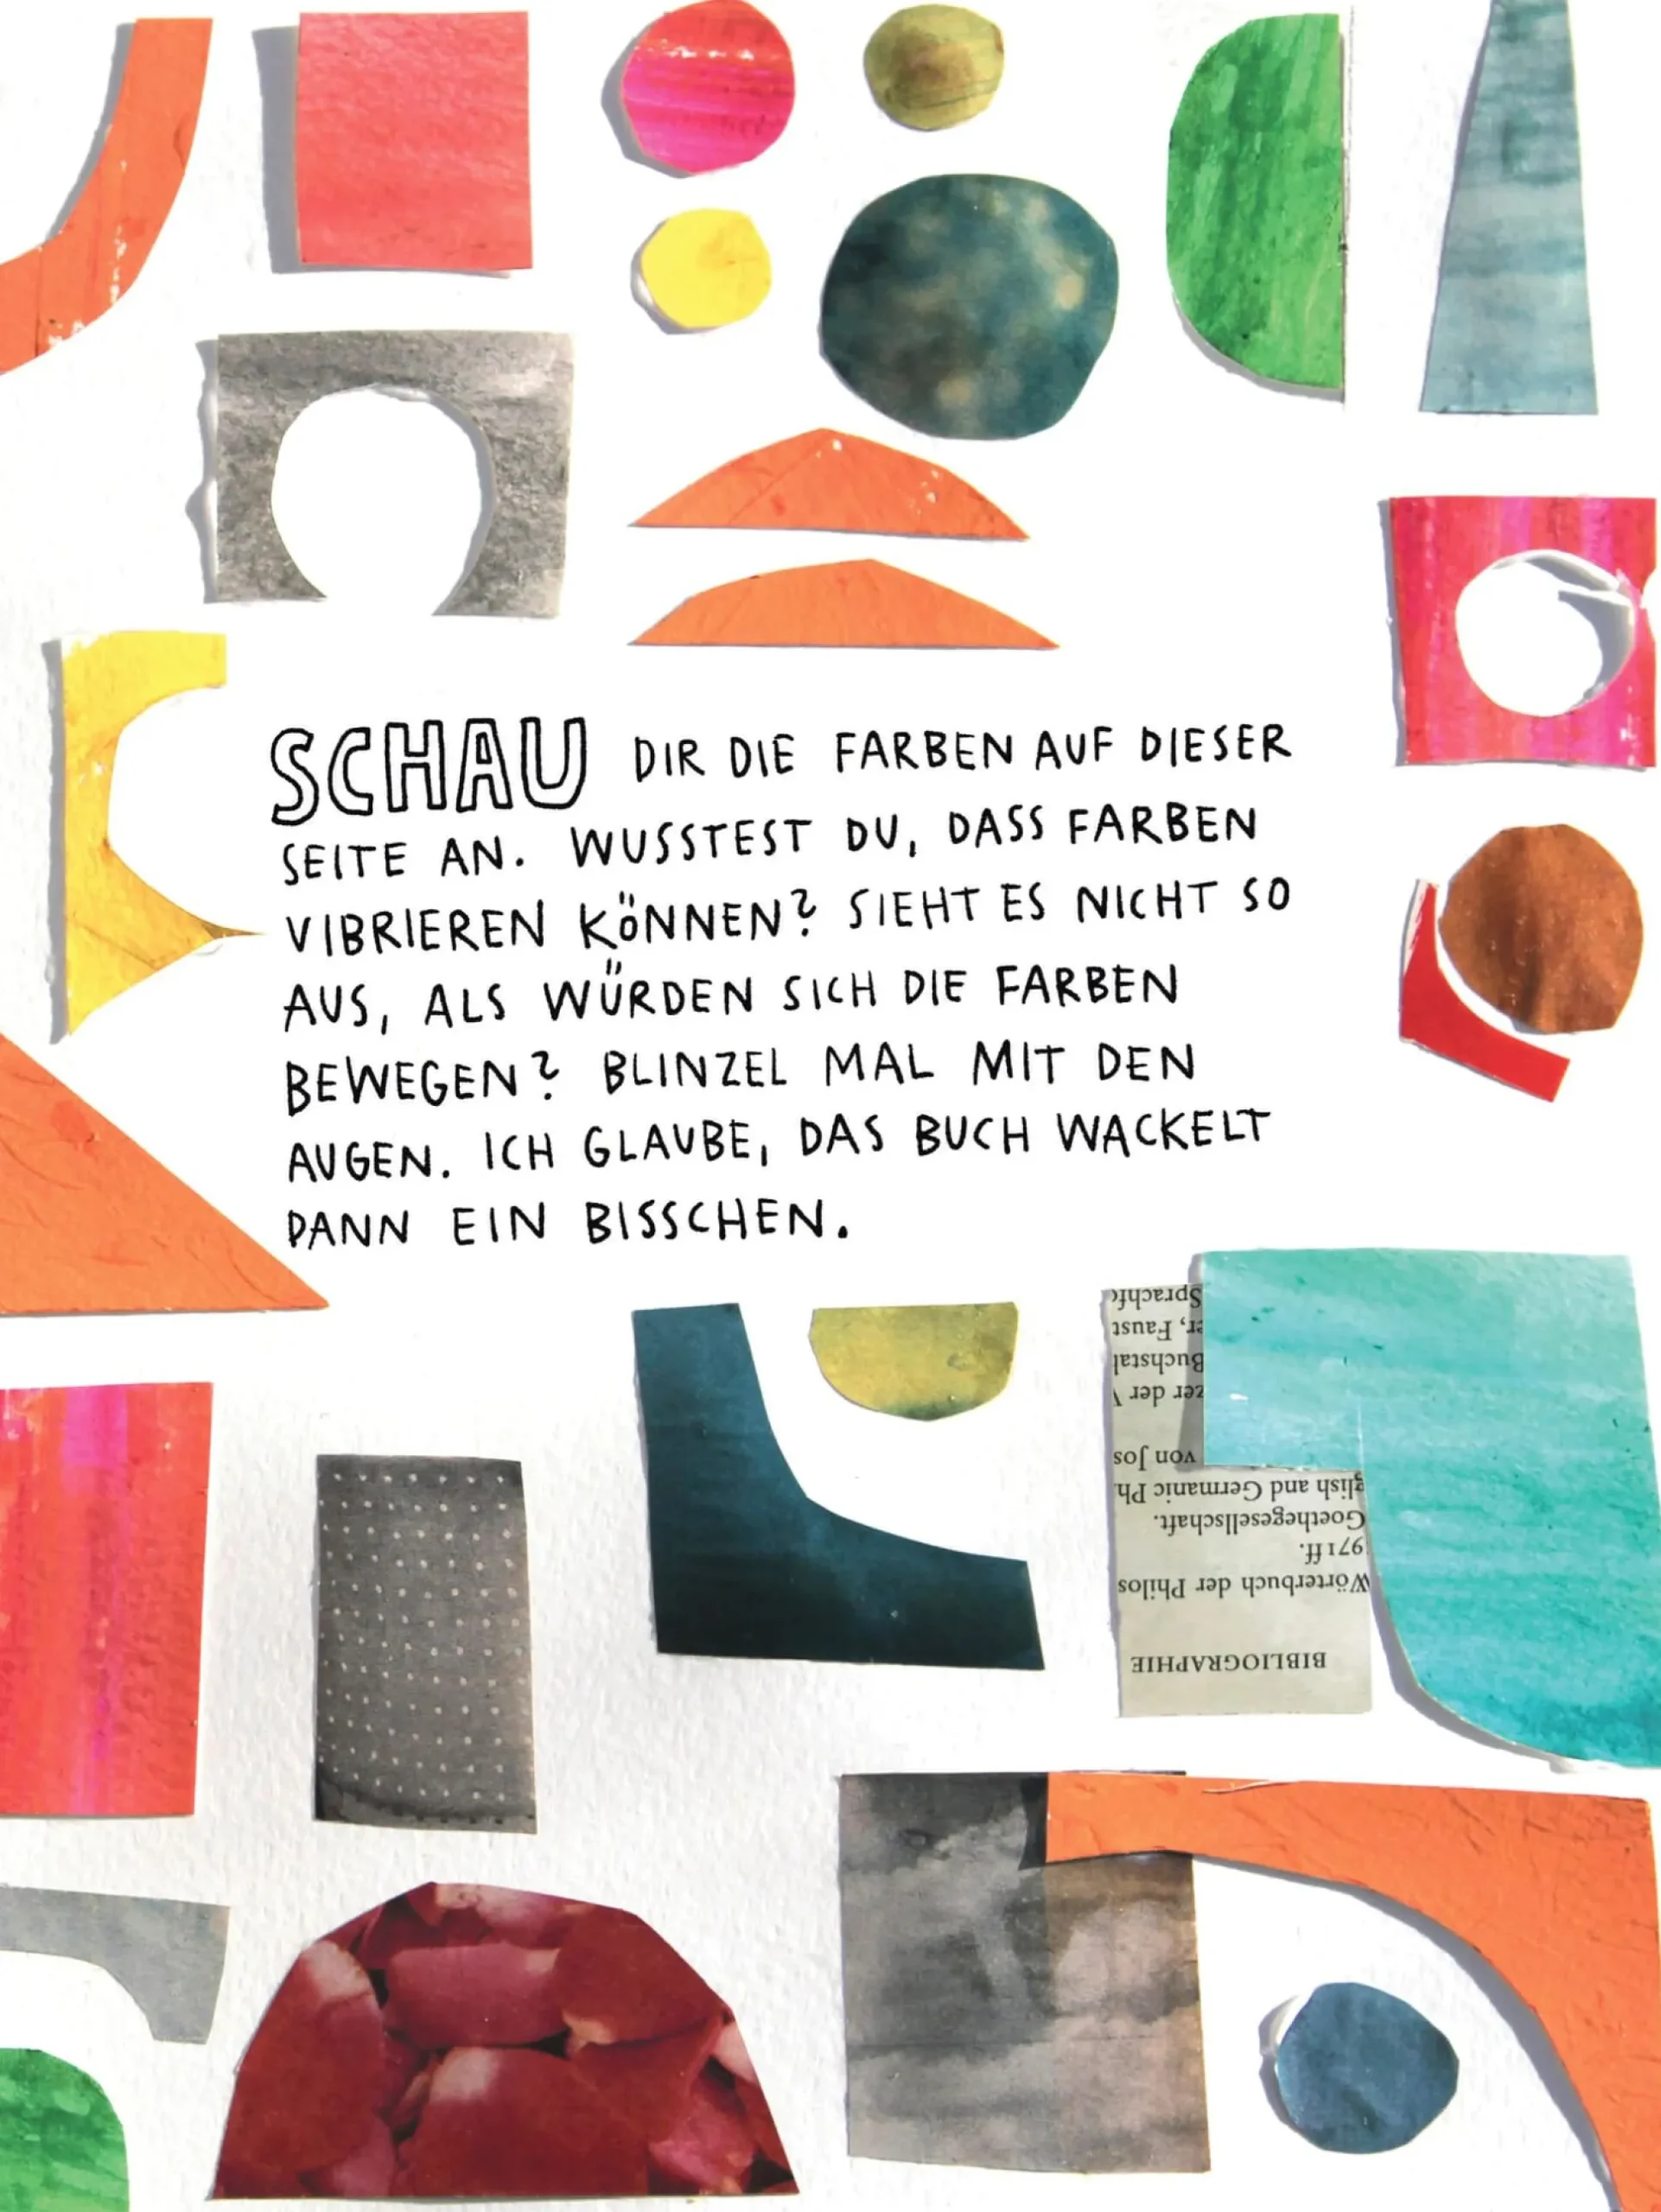 SCHAU DIR DIE FARBEN AUF DIESER
SEITE AN. WUSSTEST DU, DASS FARBEN
VIBRIEREN KÖNNEN? SIEHT ES NICHT SO
AUS, ALS WÜRDEN SICH DIE FARBEN
BEWEGEN? BLINZEL MAL MIT DEN
AUGEN. ICH GLAUBE, DAS BUCH WACKELT
DANN EIN BISSCHEN.
BIBLIOGRAPHIE
Wörterbuch der Philos
971 ff.
Goethegesellschaft.
glish and Germanic Ph
von Jos
zer der
Buchstal
er, Faust
Sprachfo